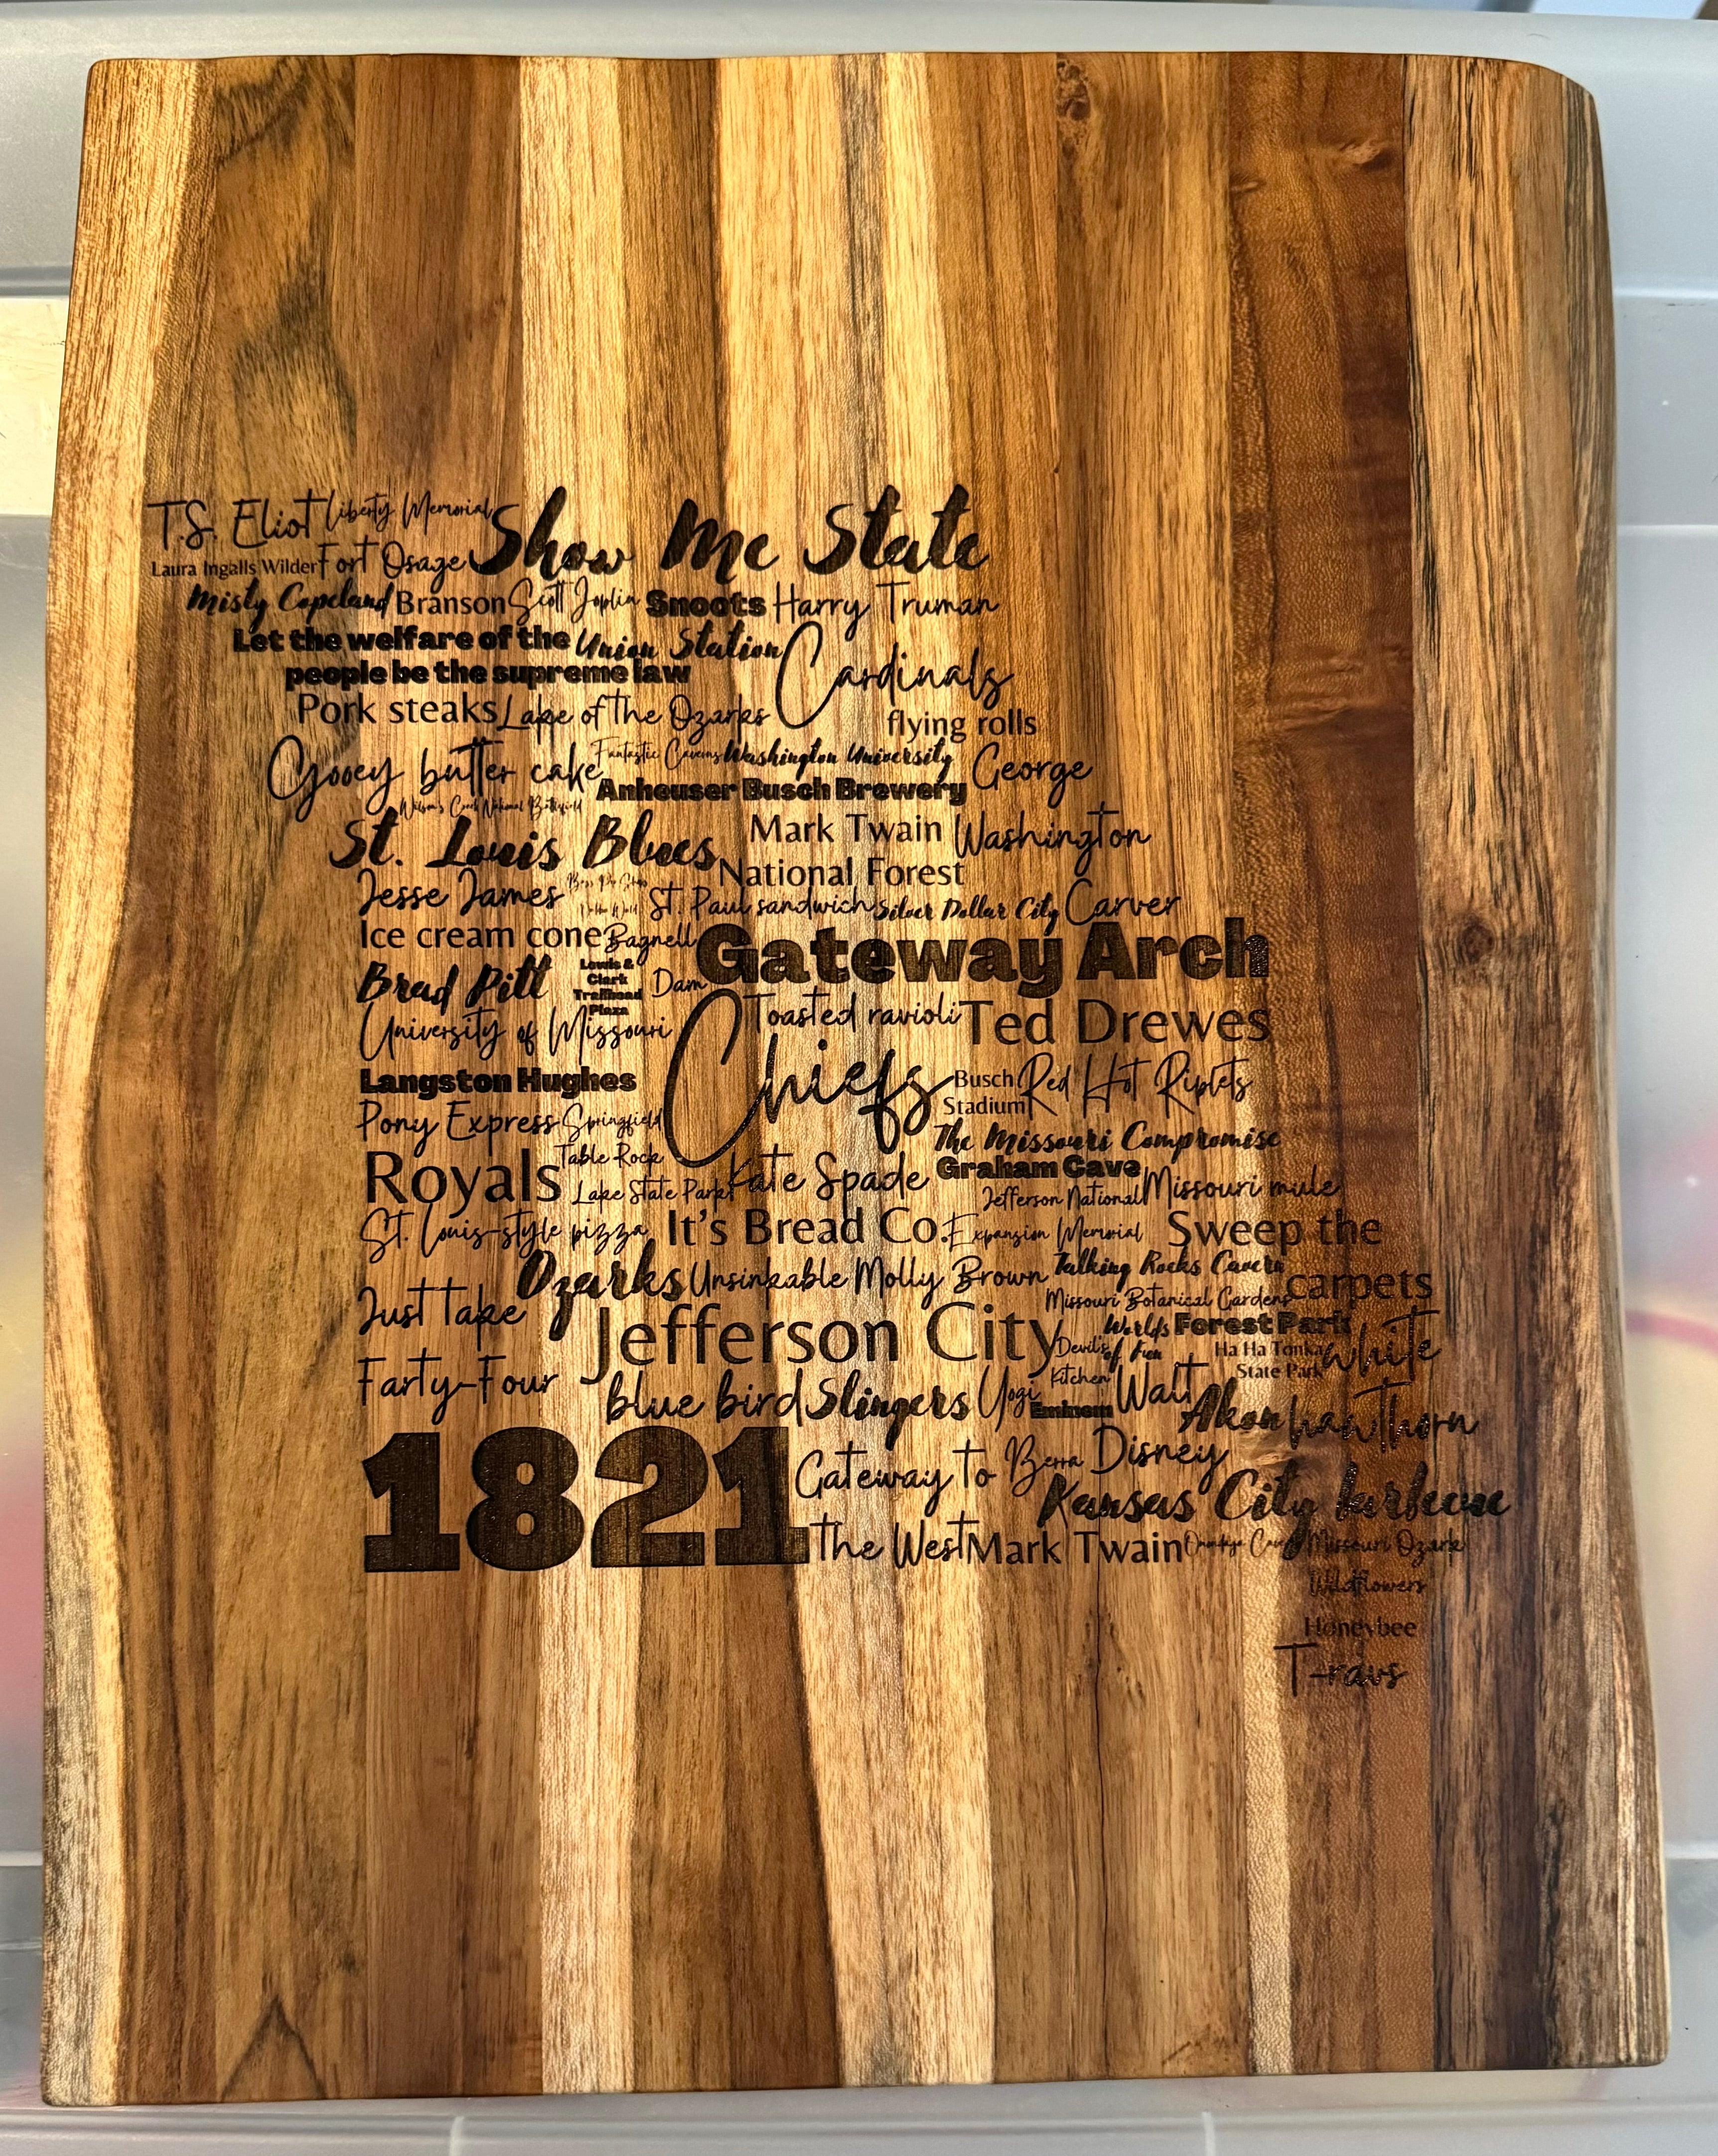 T.S. Eliot Liberty Memorial Show Me State
Laura Ingalls Wilder Fort Osage
Misty Copeland Branson Scott Joplin Snoots Harry Truman
Let the welfare of the Union Station Cardinals
people be the supreme law
Pork steaks Lake of the Ozarks flying rolls
Gooey butter cake Fantastic Caverns Washington University George
Wilson's Creek National Battlefield Anheuser Busch Brewery
St. Louis Blues Mark Twain Washington
National Forest
Jesse James St. Paul sandwich Silver Dollar City Carver
Ice cream cone Bagnell Gateway Arch
Brad Pitt Lewis & Dam
Clark
Trailhead
Plaza
University of Missouri Toasted ravioli Ted Drewes
Langston Hughes Chiefs Busch Red Hot Riplets
Stadium
Pony Express Springfield The Missouri Compromise
Royals Table Rock Kate Spade Graham Cave
Lake State Park Jefferson National Missouri mule
St. Louis-style pizza It's Bread Co. Expansion Memorial Sweep the
Ozarks Unsinkable Molly Brown Talking Rocks Cavern carpets
Just take Missouri Botanical Gardens
Jefferson City Worlds Forest Park white
Devil's of Fun Ha Ha Tonka
Kitchen State Park
Farty-Four blue bird Slingers Yogi Eminem Walt Akon hawthorn
1821 Gateway to Berra Disney
Kansas City barbecue
The West Mark Twain Onondaga Cave Missouri Ozark
Wildflowers
Honeybee
T-ravs